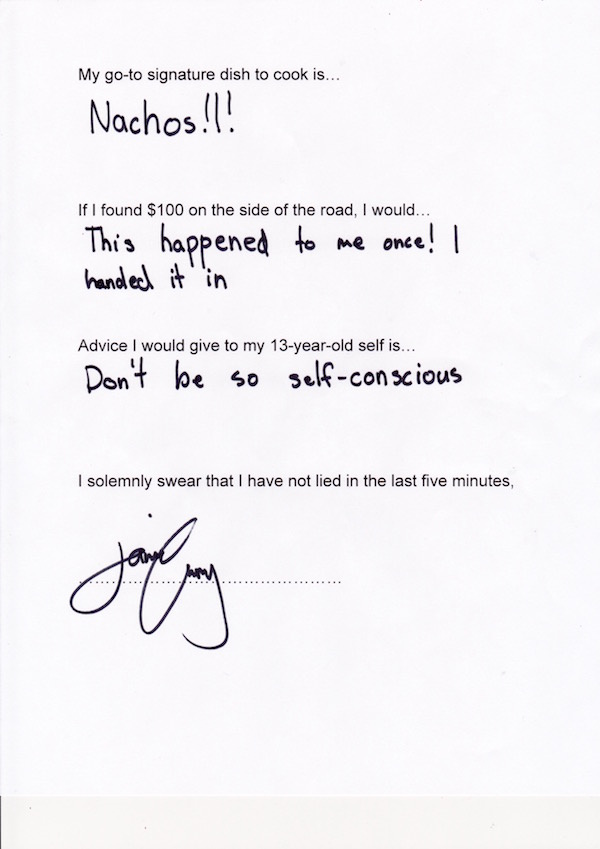 My go-to signature dish to cook is…
Nachos!!!
If I found $100 on the side of the road, I would…
This happened to me once! I
handed it in
Advice I would give to my 13-year-old self is…
Don't be so self-conscious
I solemnly swear that I have not lied in the last five minutes,